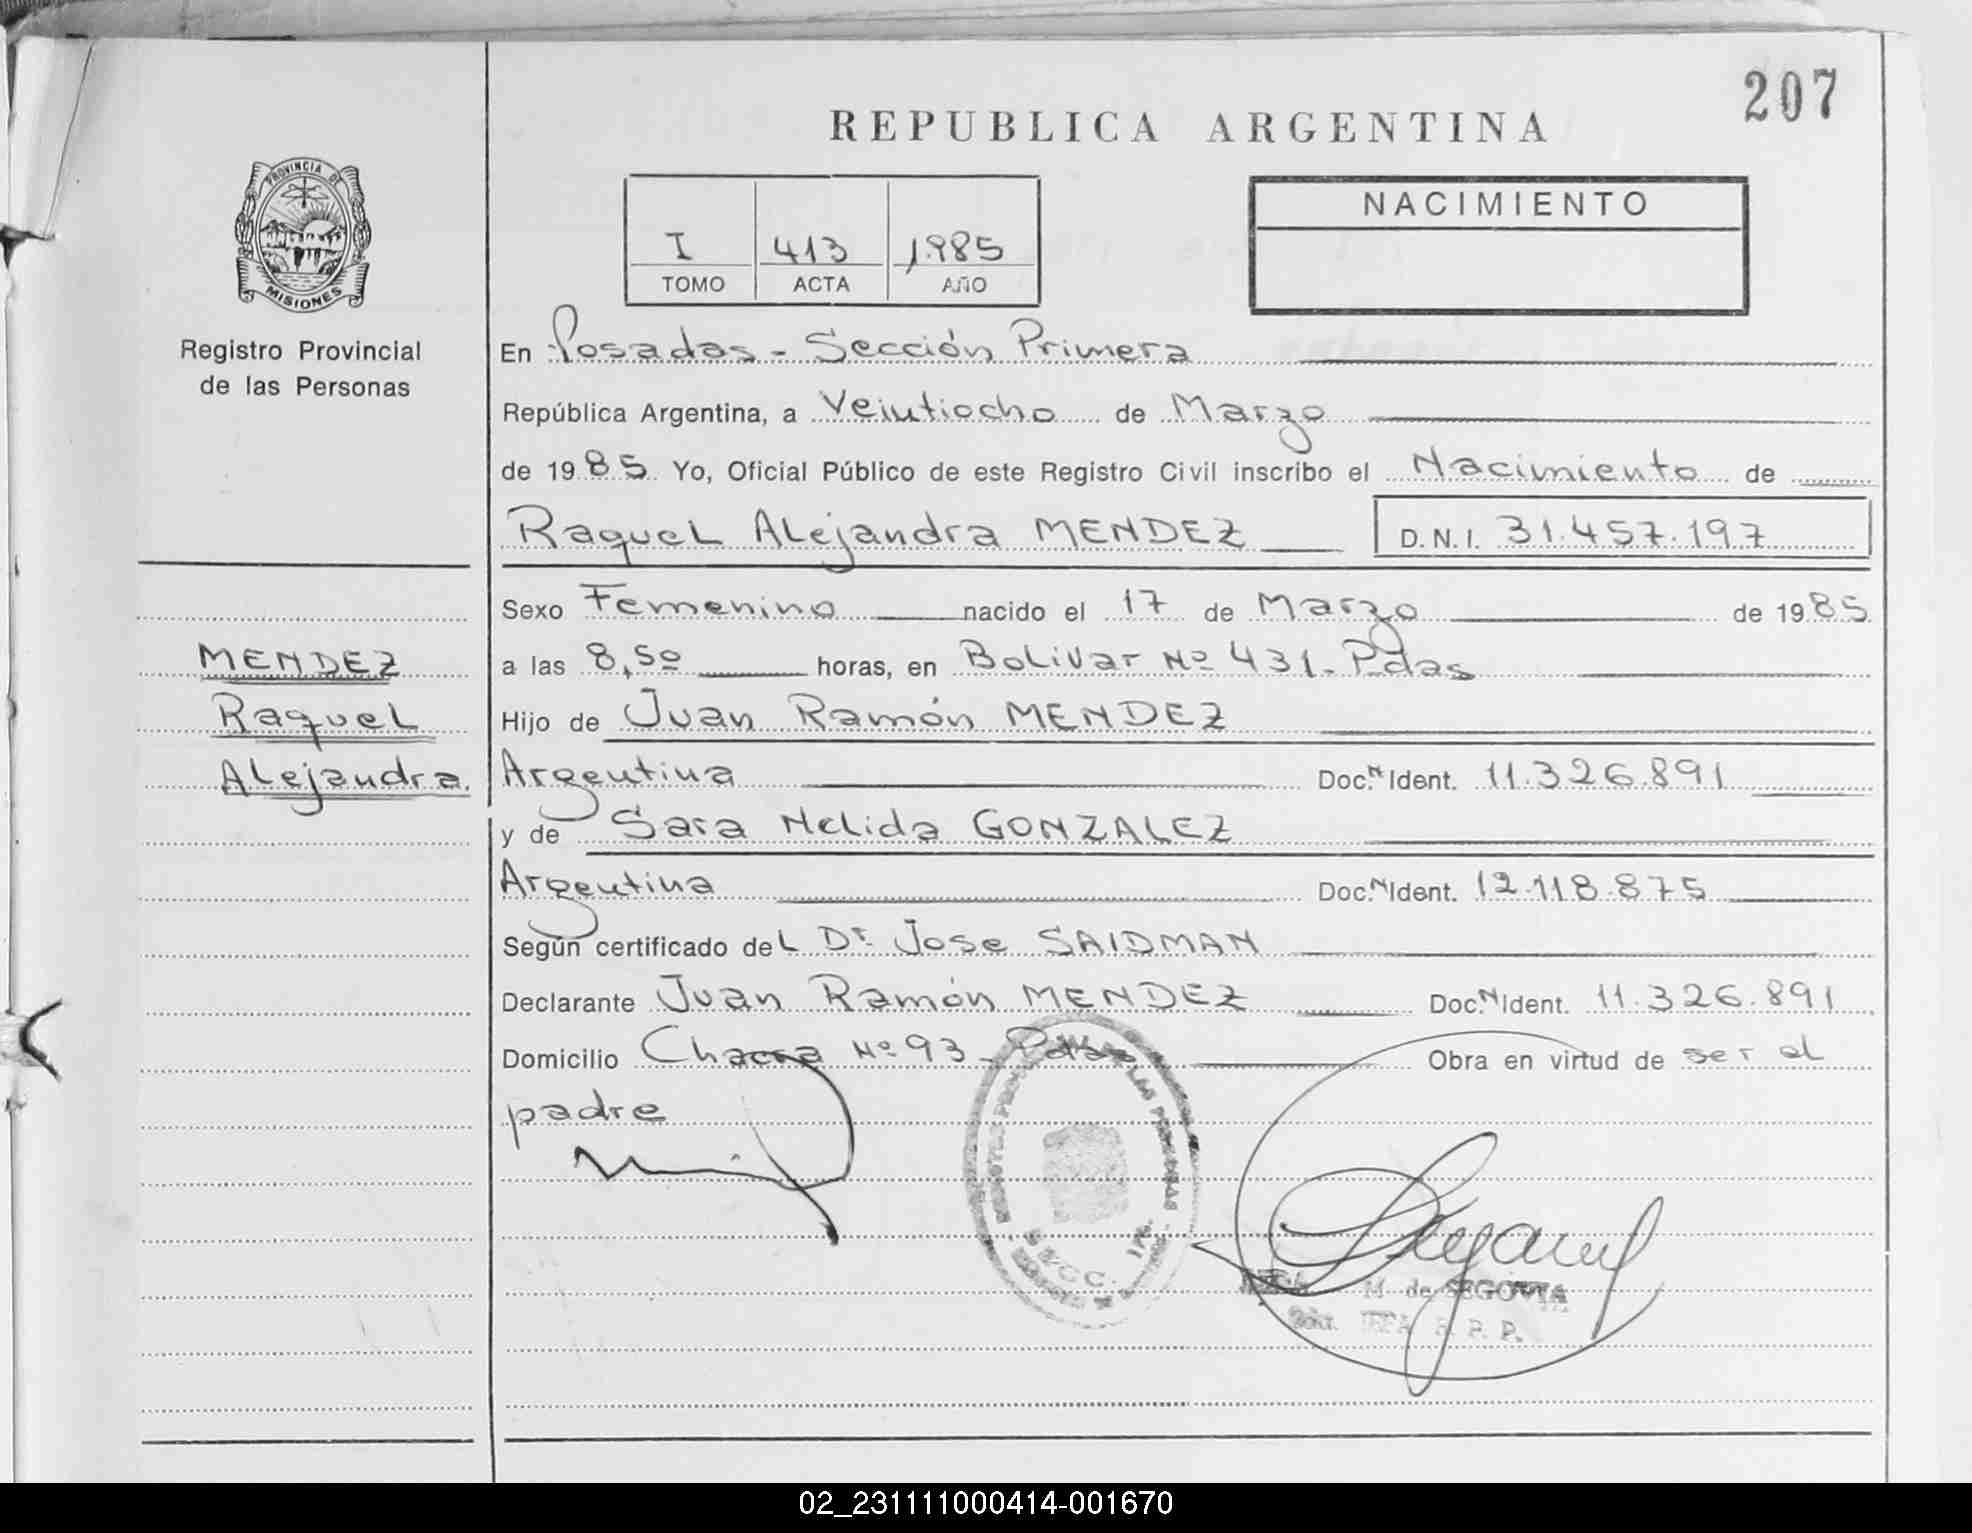 207
REPUBLICA ARGENTINA
PROVINCIA DE
MISIONES
Registro Provincial
de las Personas
I 413 1.985
TOMO ACTA AÑO
NACIMIENTO
En Posadas - Sección Primera
República Argentina, a Veintiocho de Marzo
de 1985 Yo, Oficial Público de este Registro Civil inscribo el Nacimiento de
Raquel Alejandra MENDEZ D.N.I. 31.457.197
Sexo Femenino nacido el 17 de Marzo de 1985
MENDEZ
Raquel
Alejandra
a las 8,50 horas, en Bolivar Nº 431 - Pdas
Hijo de Juan Ramón MENDEZ
Argentina Doc. N Ident. 11.326.891
y de Sara Nelida GONZALEZ
Argentina Doc. N Ident. 12.118.875
Según certificado del Dr. Jose SAIDMAN
Declarante Juan Ramón MENDEZ Doc. N Ident. 11.326.891
Domicilio Chacra Nº 93 - Pdas Obra en virtud de ser el
padre
M. de SEGOVIA
R. P. P.
02_231111000414-001670